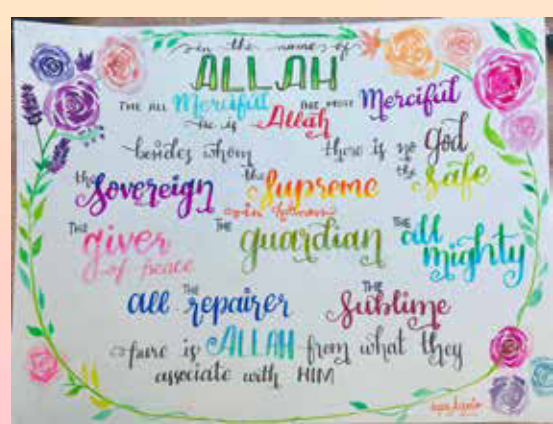 in the names of
ALLAH
THE ALL Merciful THE MOST Merciful
he is Allah
besides whom there is no God
the Sovereign the Supreme the Safe
in holiness
THE giver of peace THE guardian THE all mighty
THE all repairer THE Sublime
pure is ALLAH from what they
associate with HIM